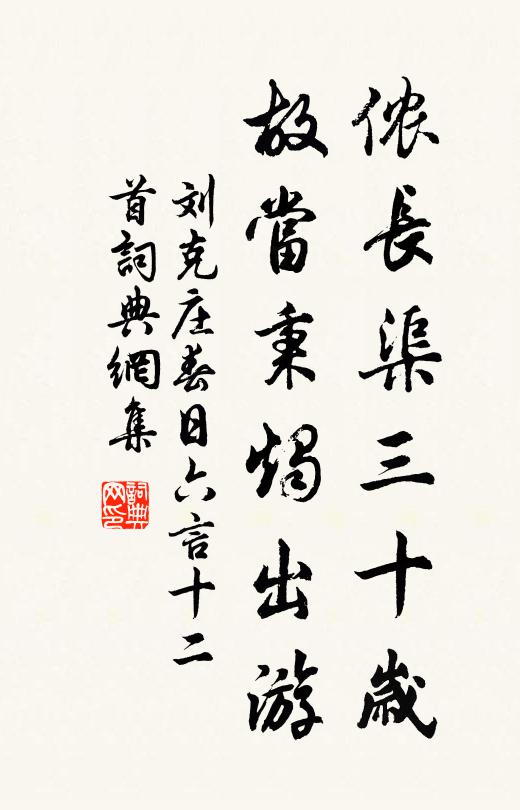 侬長渠三十歲
故當秉燭出游
刘克庄春日六言十二
首詞典網集
詞典网印